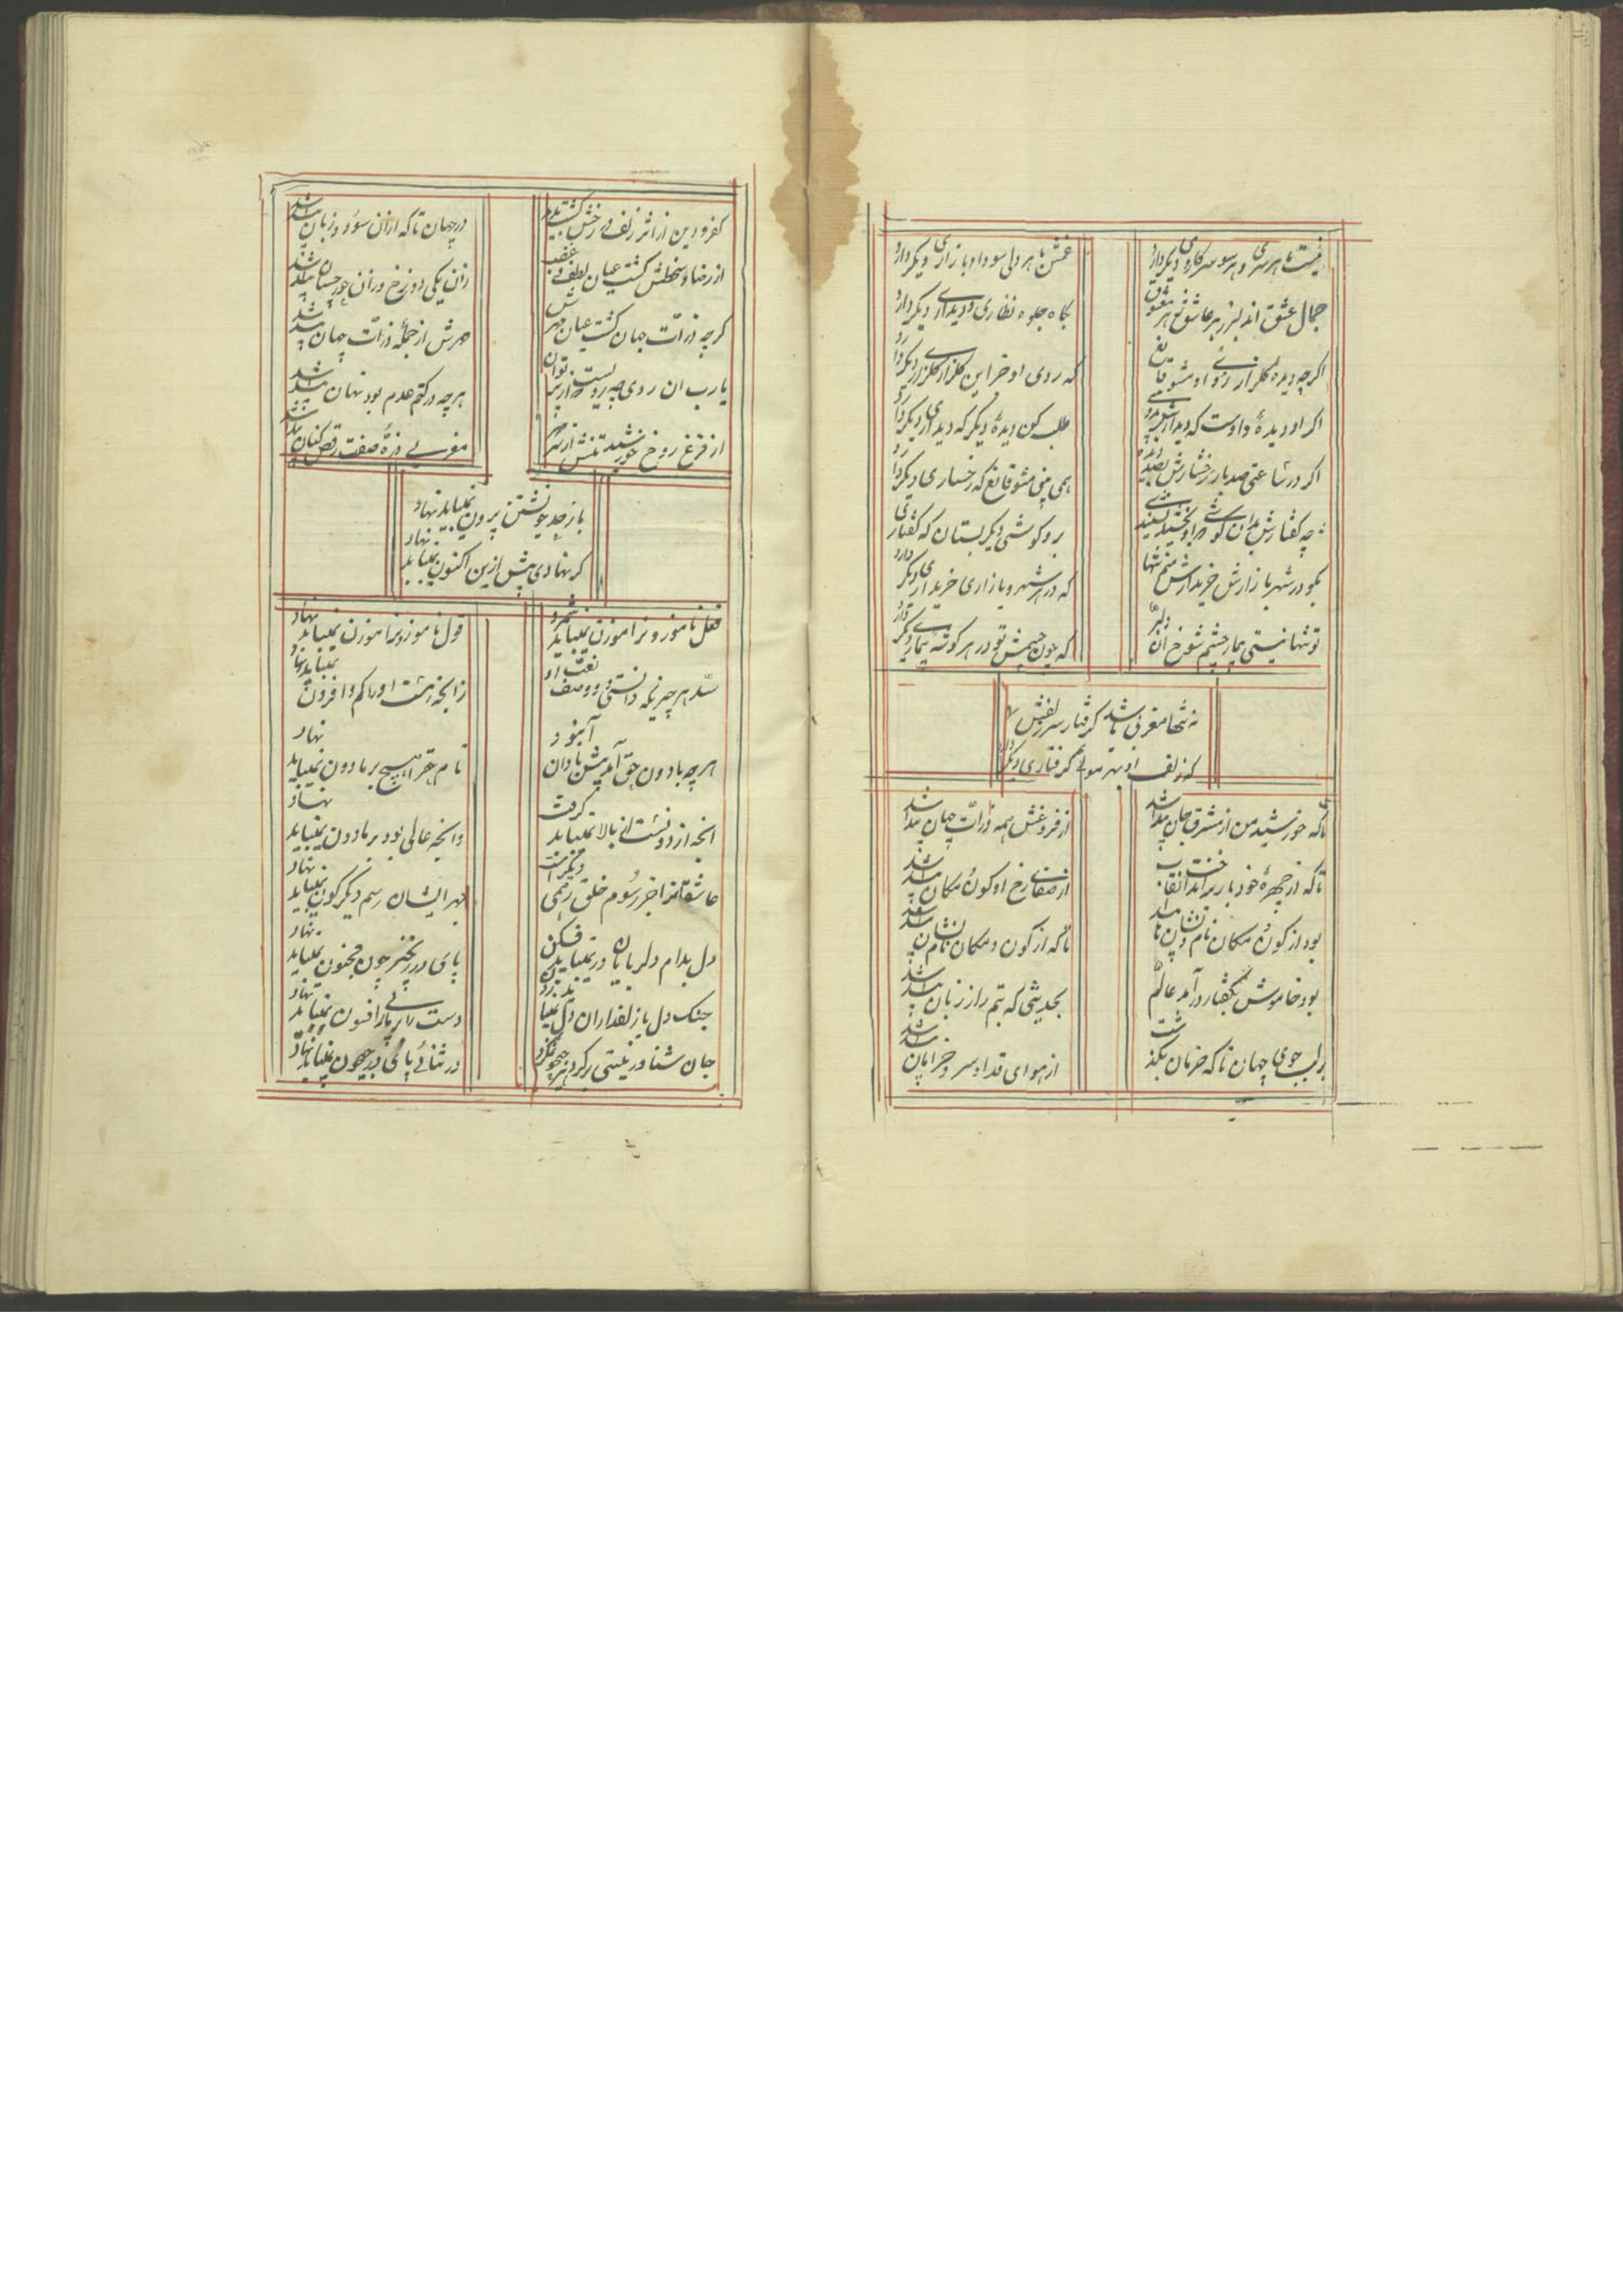 نیست با هر سری و هر سو سر کاری دیگر دارد
غمش با هر دلی سودا و بازاری دیگر دارد
جمال عشق اندر هر عاشق ز هر معشوق
نگاه جلوه نظاری و دیداری دیگر دارد
اکرچه دیده گلزار از روی او مشو قانع
که روی او جز این گلزار گلزار دیگر دارد
اکر او دیده داوست که دیدارش
طلب کن دیده دیگر که دیداری دیگر دارد
اکر در ساعتی صد بار رخسارش بصد دیده
همی بینی مشو قانع که رخساری دیگر دارد
چه گفتارش بدان گوشی که او بخشید بشنیدی
برو گوشی دیگر بستان که گفتاری دیگر دارد
بکو در شهر بازارش خریدارش منم تنها
که در هر شهر و بازاری خریداری دیگر دارد
تو تنها نیستی بیمار چشم شوخ آن دلبر
که چون چشمش تو در هر گوشه بیماری دیگر دارد
نه تنها مغربی باشد گرفتار سر زلفش
که زلف او بهر موئی گرفتاری دیگر دارد
تا که خورشید من از مشرق جان پیدا شد
از فروغش همه ذرات جهان پیدا شد
تا که از چهره خود باز برانداخت نقاب
از صفای رخ او کون و مکان پیدا شد
بود از کون و مکان نام و نشان ناپیدا
تا که از کون و مکان نام و نشان پیدا شد
بود خاموش بگفتار درآمد عالم
بحدیثی که بتم را ز زبان پیدا شد
بر لب جوی جهان تا که خرمان بگذشت
از هوای قد او سرو خرامان
کفر و دین از اثر زلف و رخش گشت پدید
در جهان تا که ازان سود و زیان پیدا شد
از رضا و سخطش گشت عیان لطف و غضب
زان یکی دوزخ و زان حور جنان پیدا شد
گرچه ذرات جهان گشت عیان مهرش
مهرش از جمله ذرات جهان پیدا شد
یا رب آن روی چه رویست که از پرتو آن
هرچه در کتم عدم بود نهان پیدا شد
از فرغ رخ خورشید
مغربی ذره صفت رقص کنان پیدا شد
پا ز حد خویشتن بیرون نمیباید نهاد
گر نهادی پیش ازین اکنون نمیباید نهاد
فعل ناموزون را موزون نمیباید شمرد
قول ناموزون را موزون نمیباید نهاد
سد هر چیزیکه دانستی و وصف نعت او
زانچه هست او را کم و افزون نمیباید نهاد
هرچه با دون حق آمد پیش نادان آن بود
نام حق را هیچ بر ما دون نمیباید نهاد
انچه از دونست از بالا نمیباید گرفت
وانچه عالی بود بر ما دون نمیباید نهاد
عاشقانرا جز رسوم خلق رسمی دیگرست
بهر ایشان رسم دیگرگون نمیباید نهاد
دل بدام دلربایان در نمیباید فکند
پای در زنجیر چون مجنون نمیباید نهاد
چنگ دل با زلفداران دل نمیباید زدن
دست را بر مار بی افسون نمیباید نهاد
جان شناور نیستی بر گرد هر جیحون مگرد
در شنائی پای در جیحون نمیباید نهاد